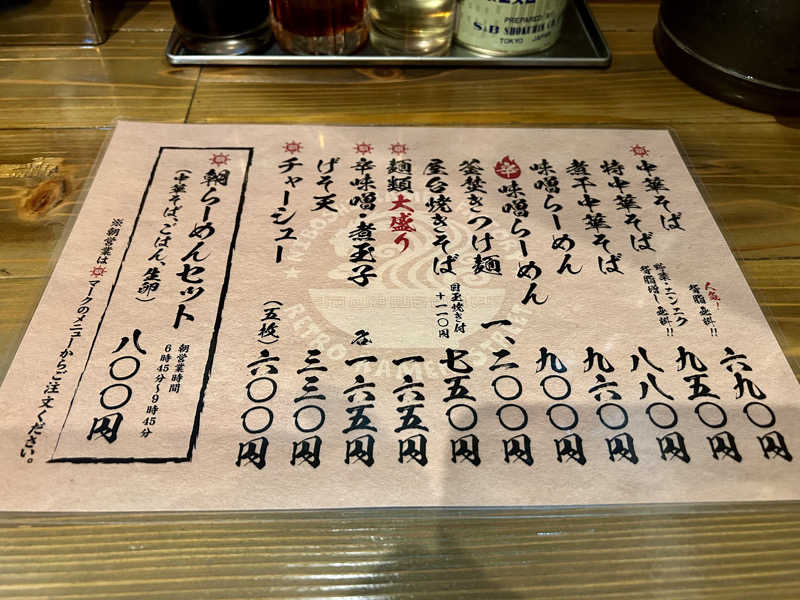 中華そば 六九〇円
大盛!
背脂 無料!!
特中華そば 九五〇円
野菜・ニンニク
背脂増し無料!!
煮干中華そば 八八〇円
味噌らーめん 九六〇円
辛味噌らーめん 九〇〇円
釜焚きつけ麺 一、二〇〇円
屋台焼きそば 七五〇円
目玉焼き付
+一一〇円
麺類大盛り 一六五円
辛味噌・煮玉子 各一六五円
げそ天 三三〇円
チャーシュー (五枚) 六〇〇円
朝らーめんセット
(中華そば、ごはん、生卵) 八〇〇円
朝営業時間
6時45分~9時45分
※朝営業は マークのメニューからご注文ください。
PREPARED BY
S&B SHOKUHIN CO.
TOKYO JAPAN
RETRO RAMEN STREET